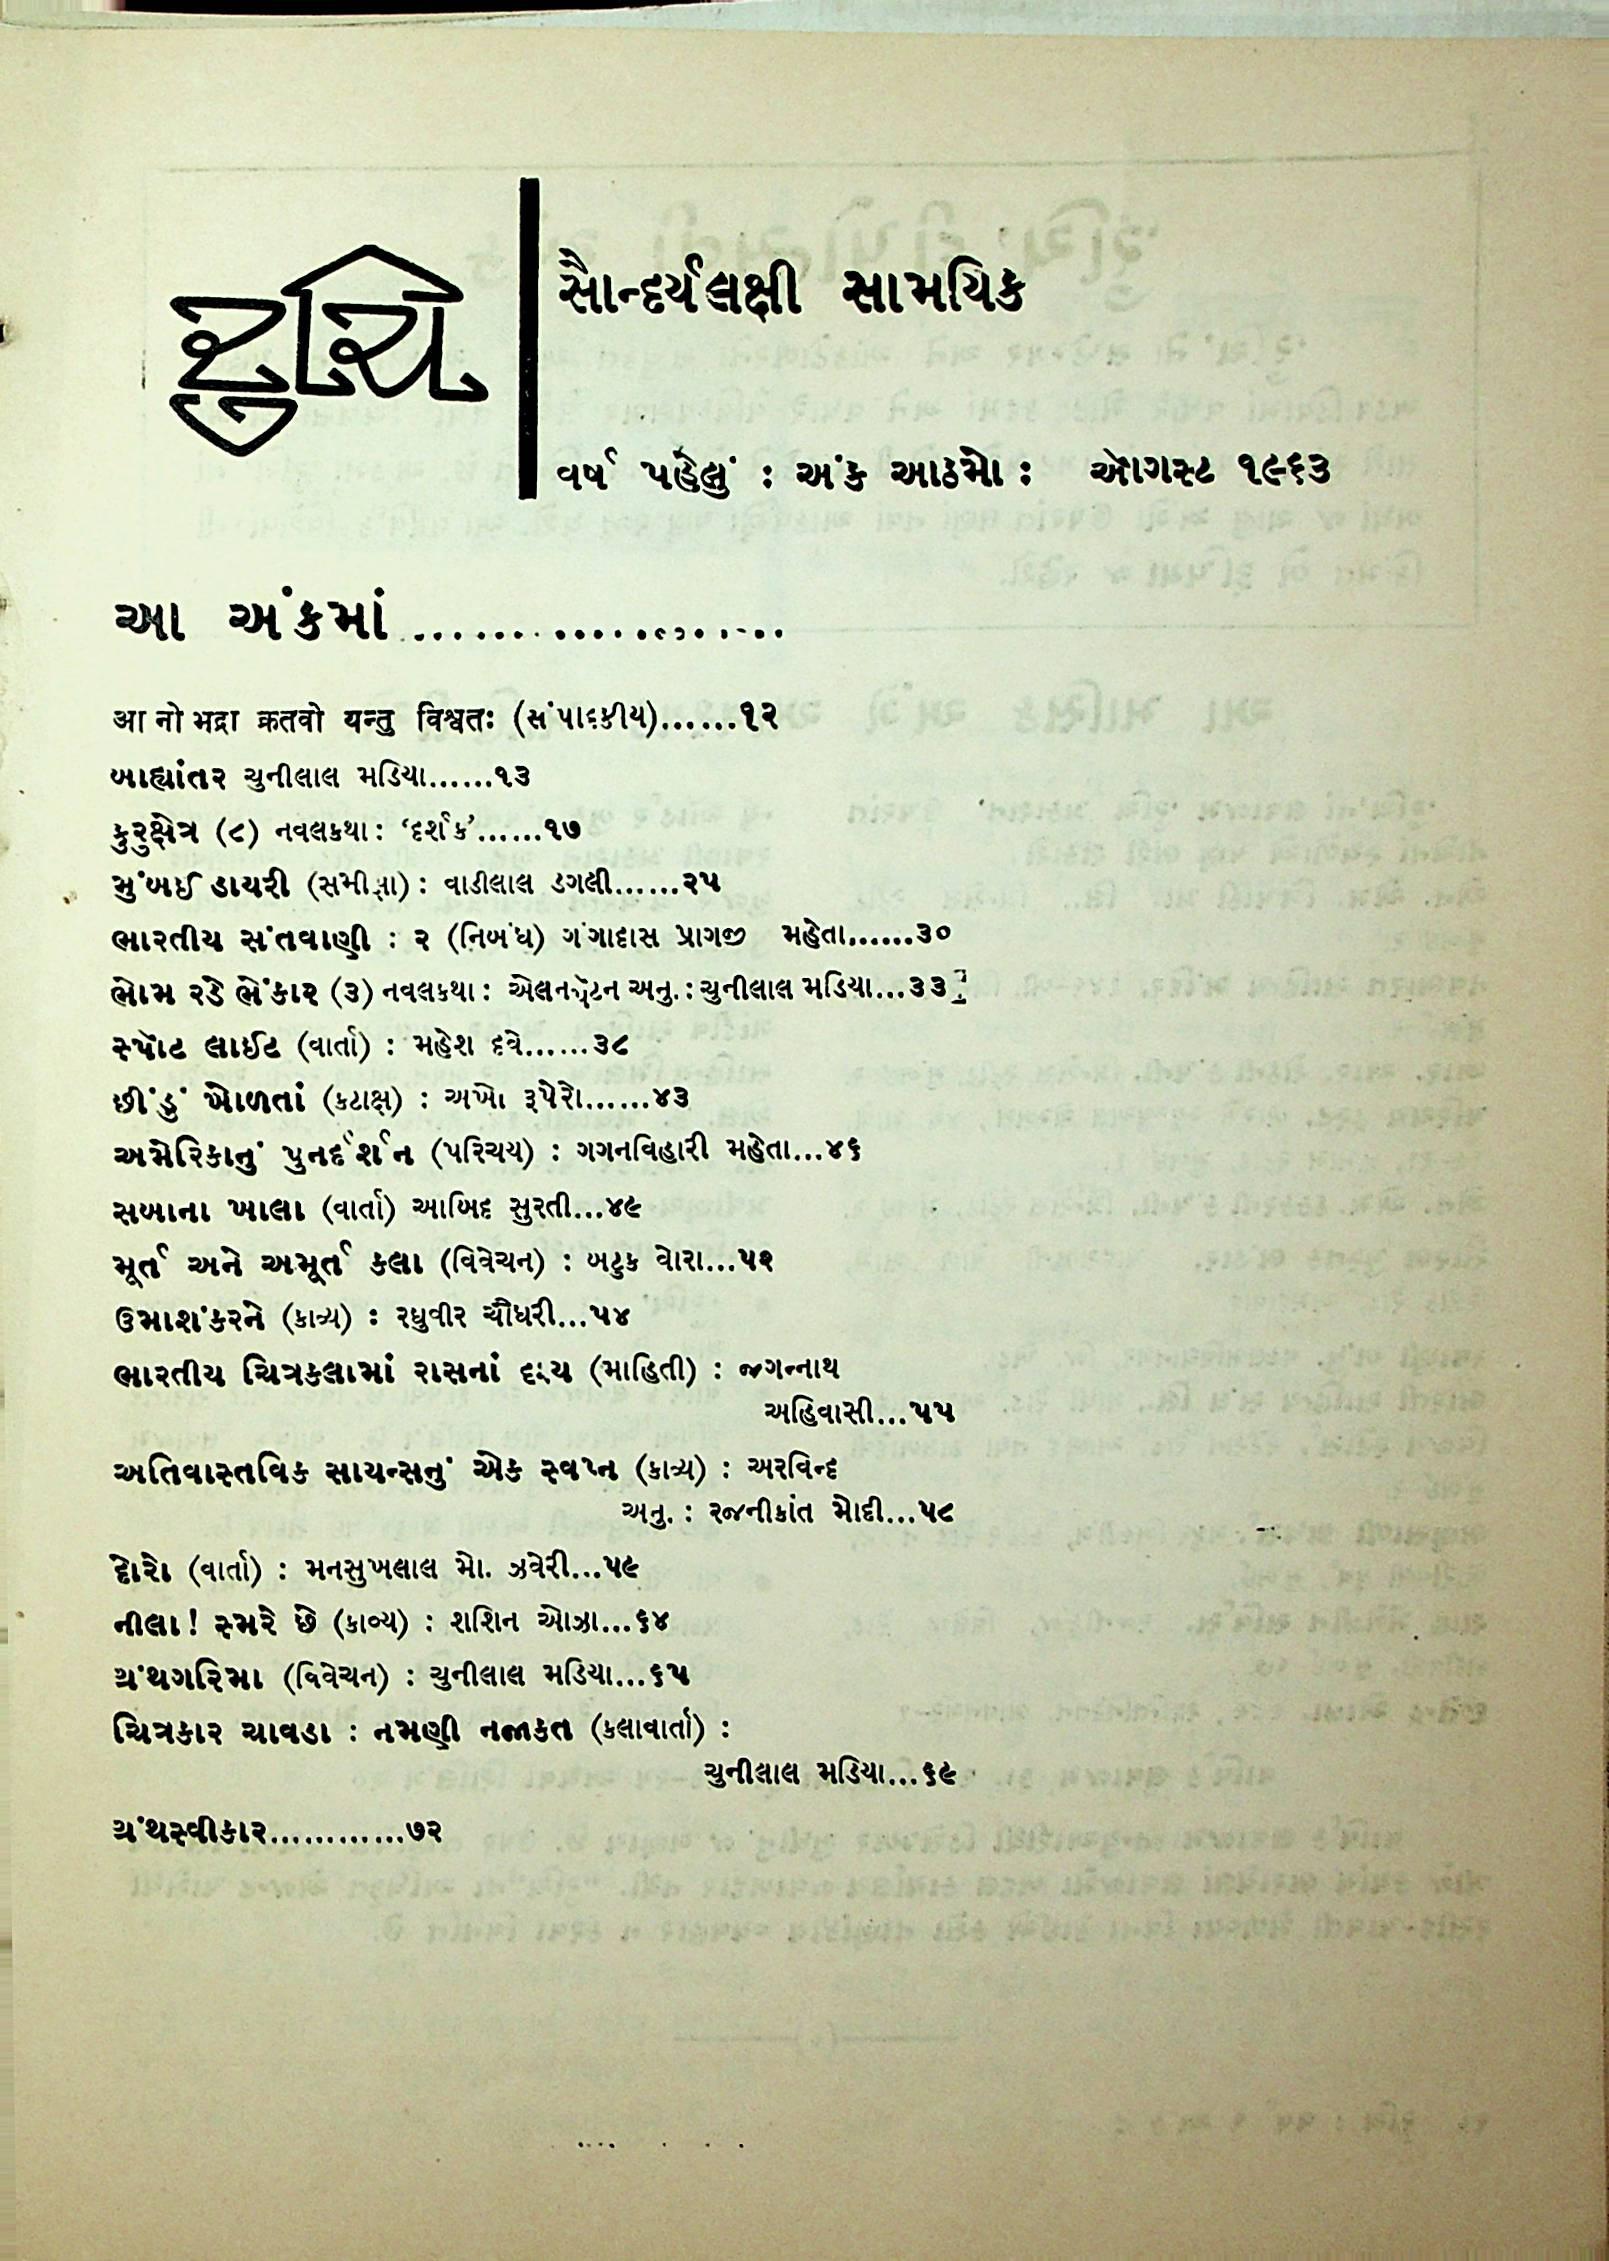 રુચિ
સૌન્દર્યલક્ષી સામયિક
વર્ષ પહેલું : અંક આઠમો : ઑગસ્ટ ૧૯૬૩
આ અંકમાં....................
आ नो भद्रा क्रतवो यन्तु विश्वतः (સંપાદકીય)......૧૨
બાહ્યાંતર ચુનીલાલ મડિયા......૧૩
કુરુક્ષેત્ર (૮) નવલકથા : ‘દર્શક’......૧૭
મુંબઈ ડાયરી (સમીક્ષા) : વાડીલાલ ડગલી......૨૫
ભારતીય સંતવાણી : ૨ (નિબંધ) ગંગાદાસ પ્રાગજી મહેતા......૩૦
ભોમ રડે ભેંકાર (૩) નવલકથા : એલન પૅટન અનુ. : ચુનીલાલ મડિયા...૩૩
સ્પૉટ લાઈટ (વાર્તા) : મહેશ દવે......૩૮
છીંડું ખોળતાં (કટાક્ષ) : અખો રૂપેરો......૪૩
અમેરિકાનું પુનર્દર્શન (પરિચય) : ગગનવિહારી મહેતા...૪૬
સબાના ખાલા (વાર્તા) આબિદ સુરતી...૪૯
મૂર્ત અને અમૂર્ત કલા (વિવેચન) : બટુક વોરા...૫૨
ઉમાશંકરને (કાવ્ય) : રઘુવીર ચૌધરી...૫૪
ભારતીય ચિત્રકલામાં રાસનાં દૃશ્ય (માહિતી) : જગન્નાથ
અહિવાસી...૫૫
અતિવાસ્તવિક સાયન્સનું એક સ્વપ્ન (કાવ્ય) : અરવિન્દ
અનુ. : રજનીકાંત મોદી...૫૮
દોરો (વાર્તા) : મનસુખલાલ મો. ઝવેરી...૫૯
નીલા! સ્મરે છે (કાવ્ય) : શશિન ઓઝા...૬૪
ગ્રંથગરિમા (વિવેચન) : ચુનીલાલ મડિયા...૬૫
ચિત્રકાર ચાવડા : નમણી નજાકત (કલાવાર્તા) :
ચુનીલાલ મડિયા...૬૯
ગ્રંથસ્વીકાર............૭૨